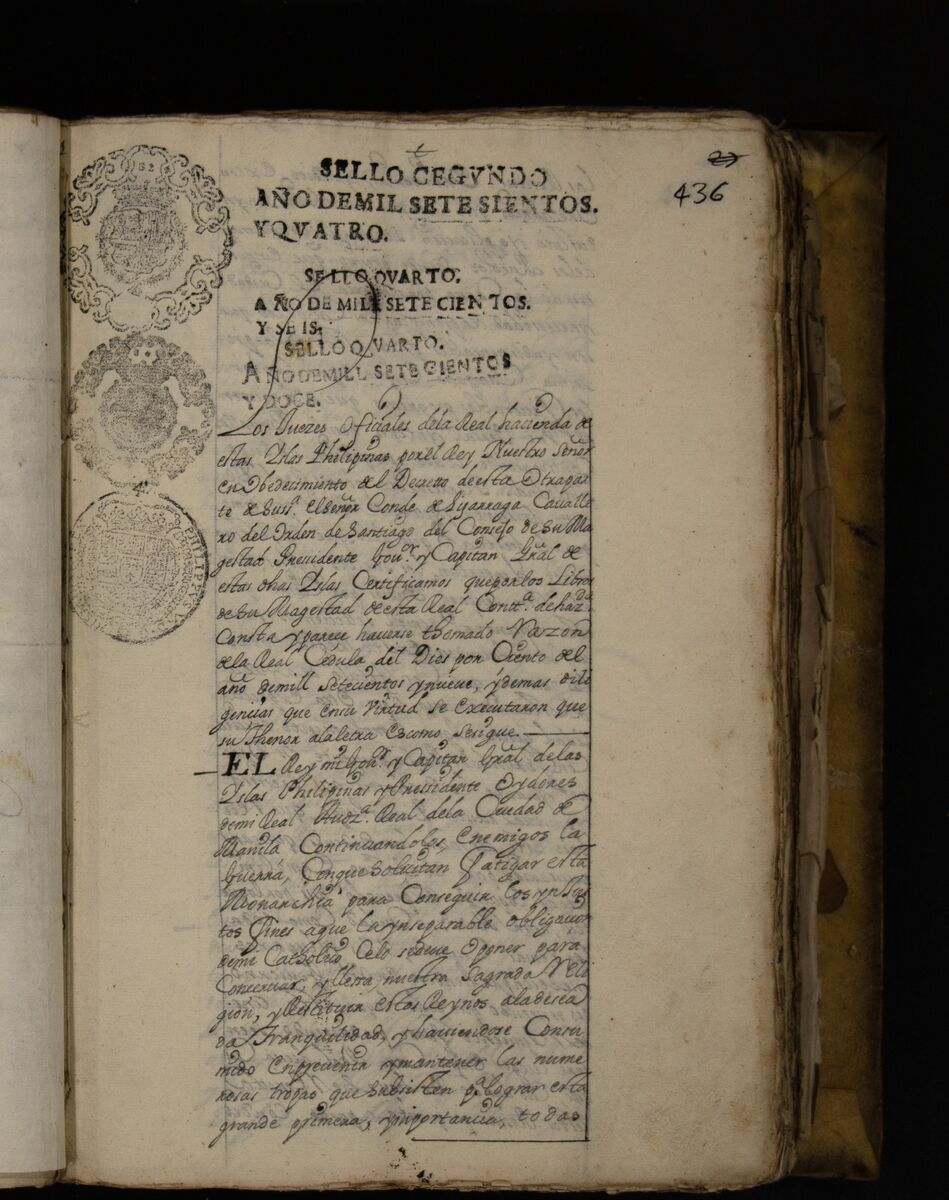 SELLO CEGVNDO
AÑO DEMIL SETE SIENTOS.
YQVATRO.
436
SELLO QVARTO,
AÑO DE MILL SETECIENTOS.
Y SEIS.
SELLO QVARTO.
AÑO DEMILL SETECIENTOS
Y DOCE.
Los Juezes oficiales dela Real hacienda de
estas Yslas Philipinas por el Rey Nuestro Señor
en Obedecimiento del Decretto de esta Otrapar
te de Suss.ª el señor Conde de Lisarraga Cavalle
ro del Orden de Santiago del Consejo de su Ma
gestad Presidente Gou.or y Capitan Gral de
estas dhas Yslas Certificamos que por los Libros
de Su Magestad de esta Real Conttª. de hazda
Consta y parece haverse thomado Razon
de la Real Cedula del Dies por Ciento del
año demill setecientos y nueve, y demas dili
gencias que en su virtud se executaron que
su thenor ala letra es como se sigue.
EL Rey mi Gou.or y Capitan Gral de las
Yslas Philipinas y Pressidente Oydores
de mi Real Audz.ª Real dela Ciudad de
Manila Continuandolos enemigos la
Guerra, Conque solicitan fatigar esta
Monarchia para Conseguir los ynjus
tos fines aque la ynseparable obligacion
de mi Catholico Celo sedeve oponer para
Conservar, y Ilessa nuestra Sagrada Reli
gión, y Restituir estos Reynos ala desea
da tranquilidad, y haviendose Consu
mido en prevenir y mantener las nume
rosas tropas que subsisten pª. lograr esta
grande primera, y ymportancia, todas
PHILIPPVS V